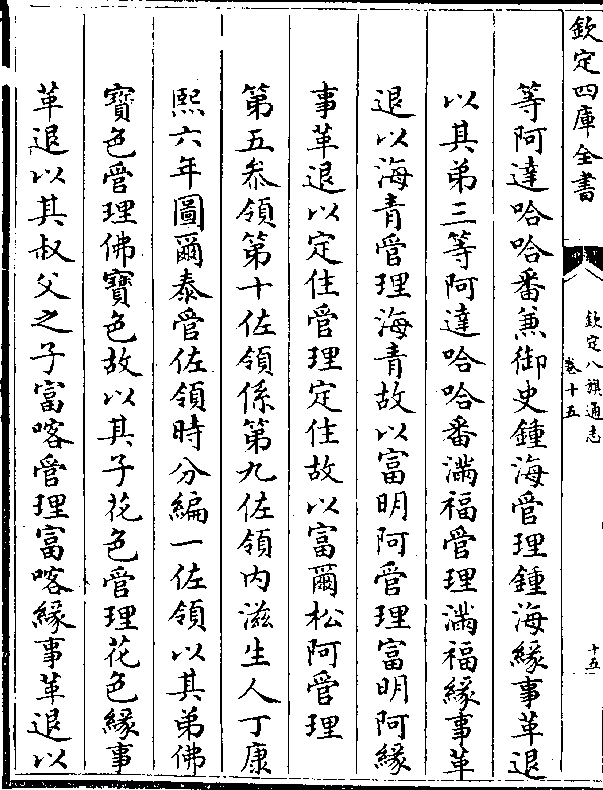 欽定四庫全書
欽定八旗通志
卷十五
十五
等阿達哈哈番兼御史鍾海管理鍾海緣事革退
以其弟三等阿達哈哈番滿福管理滿福緣事革
退以海青管理海青故以富明阿管理富明阿緣
事革退以定住管理定住故以富爾松阿管理
第五叅領第十佐領係第九佐領内滋生人丁康
熙六年圖爾泰管佐領時分編一佐領以其弟佛
寶色管理佛寶色故以其子花色管理花色緣事
革退以其叔父之子富喀管理富喀緣事革退以